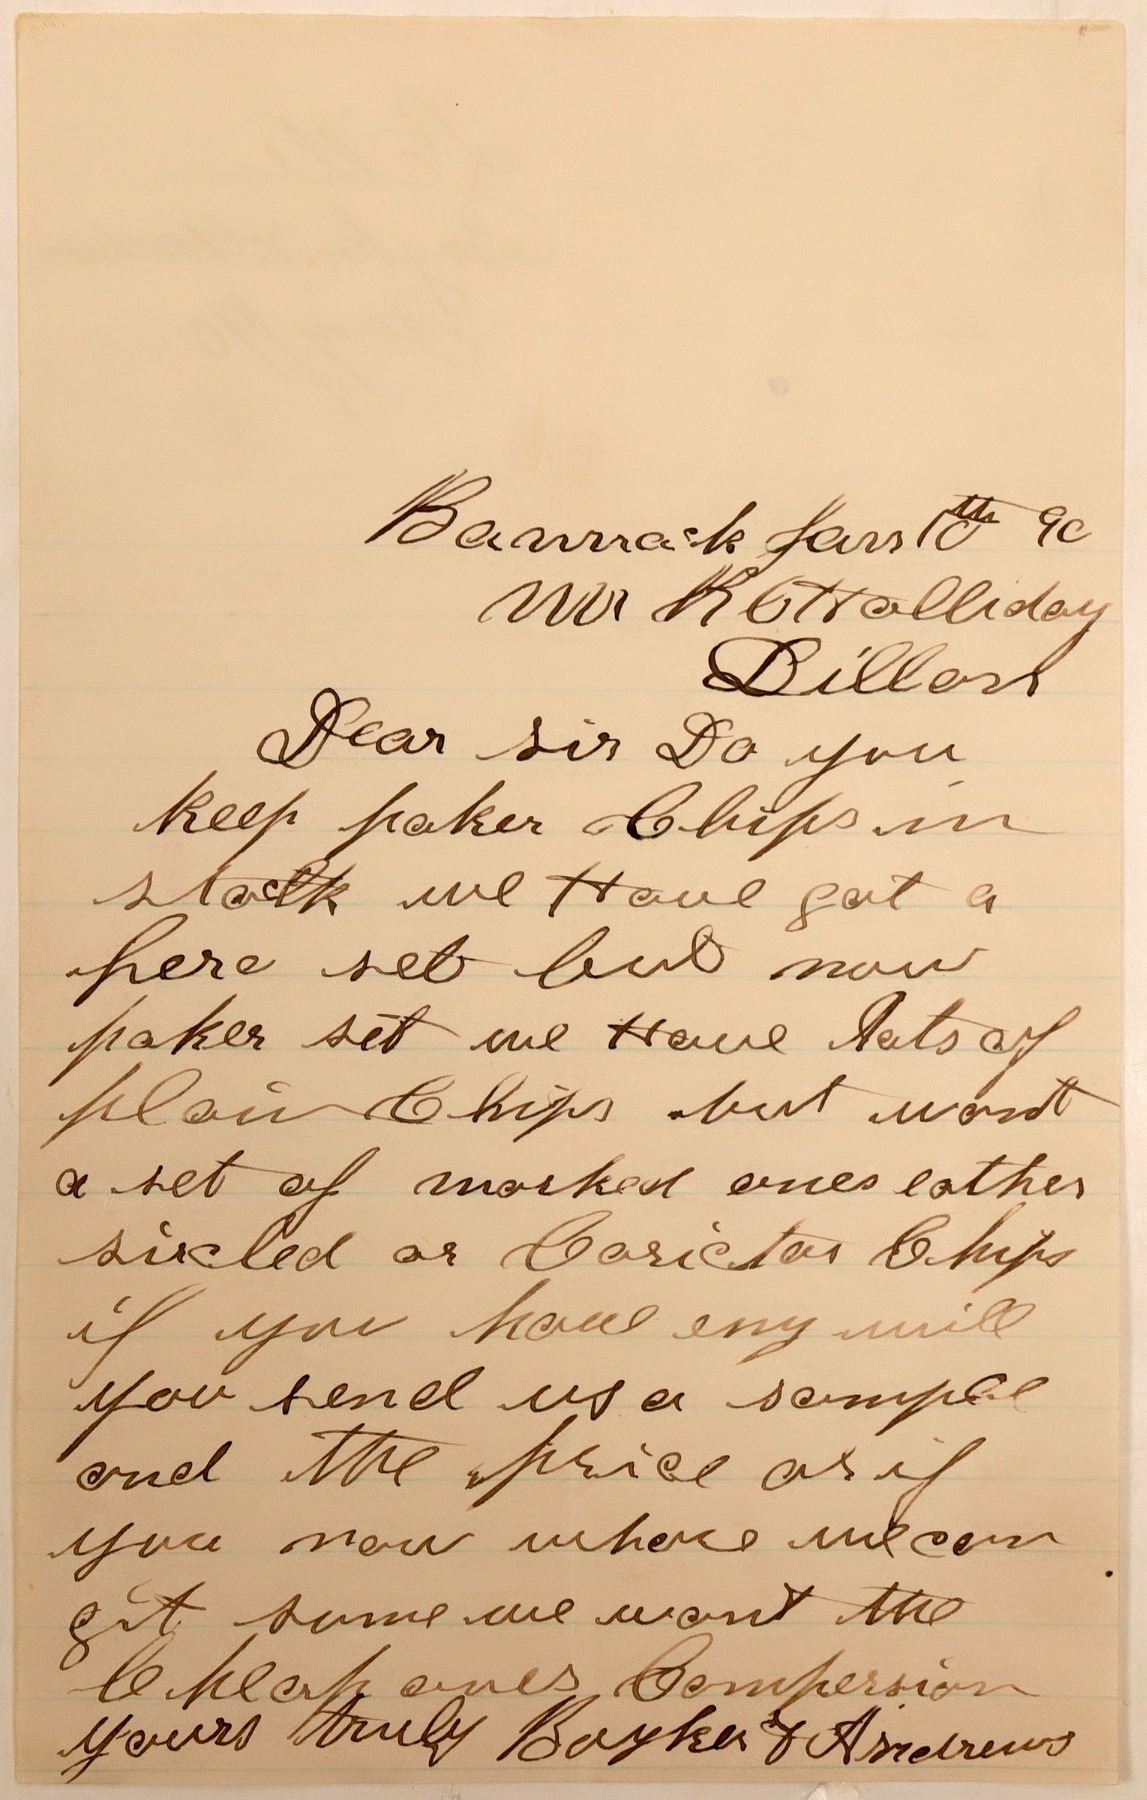 Bannack Jan 10th 90
Mr R C Halliday
Dillon
Dear sir Do you
keep poker Chips in
stock we Have got a
fero set but now
poker set we Have lots of
plain Chips but wont
a set of marked ones eather
sircled or Carictor Chips
if you have eny will
you send us a sample
and the price or if
you now whare we can
git some we wont the
Cheap ones Compersion
yours truly Boyker & Andrews